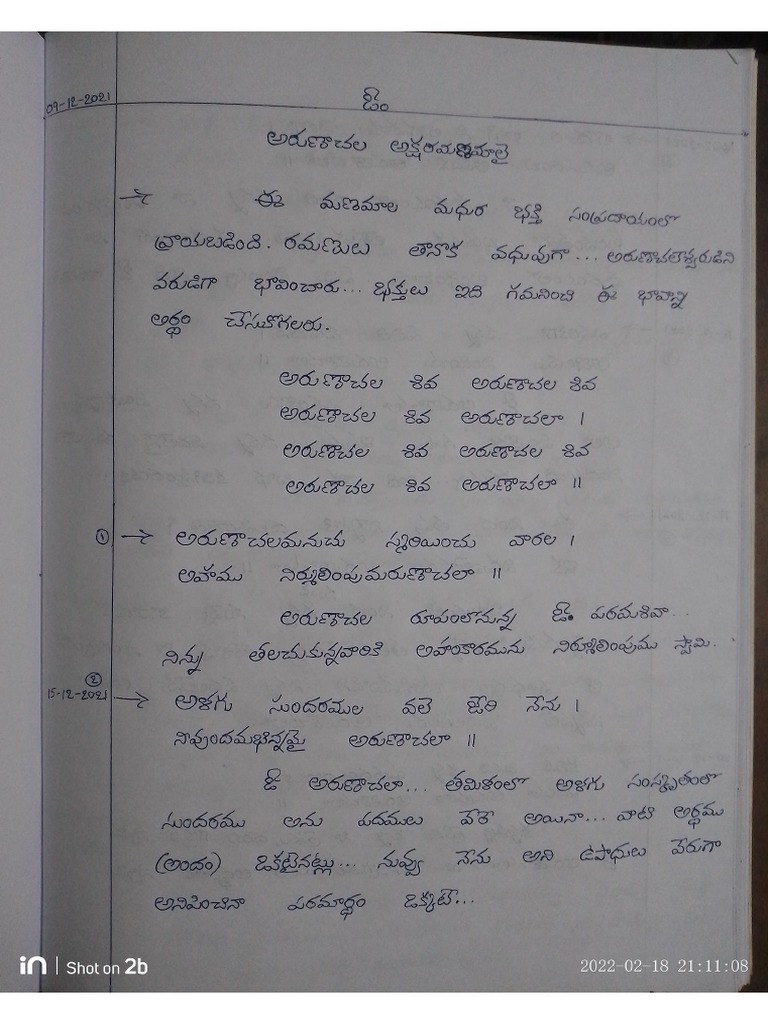 09-12-2021
ఓం
అరుణాచల అక్షరమణమాలై
→ ఈ మణమాల మధుర భక్తి సంప్రదాయంలో
వ్రాయబడింది. రమణులు తానొక వధువుగా... అరుణాచలేశ్వరుడిని
వరుడిగా భావించారు... భక్తులు ఇది గమనించి ఈ భావాన్ని
అర్థం చేసుకోగలరు.
అరుణాచల శివ అరుణాచల శివ
అరుణాచల శివ అరుణాచలా |
అరుణాచల శివ అరుణాచల శివ
అరుణాచల శివ అరుణాచలా ||
① → అరుణాచలమనుచు స్మరియించు వారల |
అహము నిర్మూలింపుమరుణాచలా ||
అరుణాచల రూపంలోనున్న ఓం పరమశివా...
నిన్ను తలచుకున్నవారికి అహంకారమును నిర్మూలింపుము స్వామి.
②
15-12-2021 → అళగు సుందరముల వలె జేరి నేను |
నీవుందమభిన్నమై అరుణాచలా ||
ఓ అరుణాచలా... తమిళంలో అళగు సంస్కృతంలో
సుందరము అను పదములు వేరే అయినా... వాటి అర్థము
(అందం) ఒకటైనట్లు... నువ్వు నేను అని ఉపాధులు వేరుగా
అనిపించినా పరమార్థం ఒక్కటే...
in | Shot on 2b
2022-02-18 21:11:08